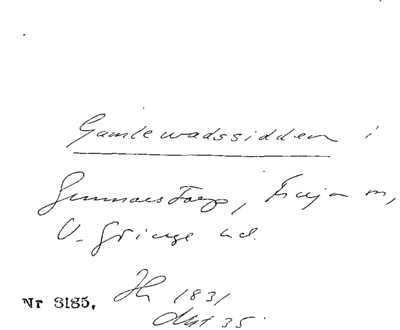 Gamlewadssidden i
Gunnarstorp, Freja m,
V. Gringe hd.
Nr 3185. Hk 1831
Akt 35.